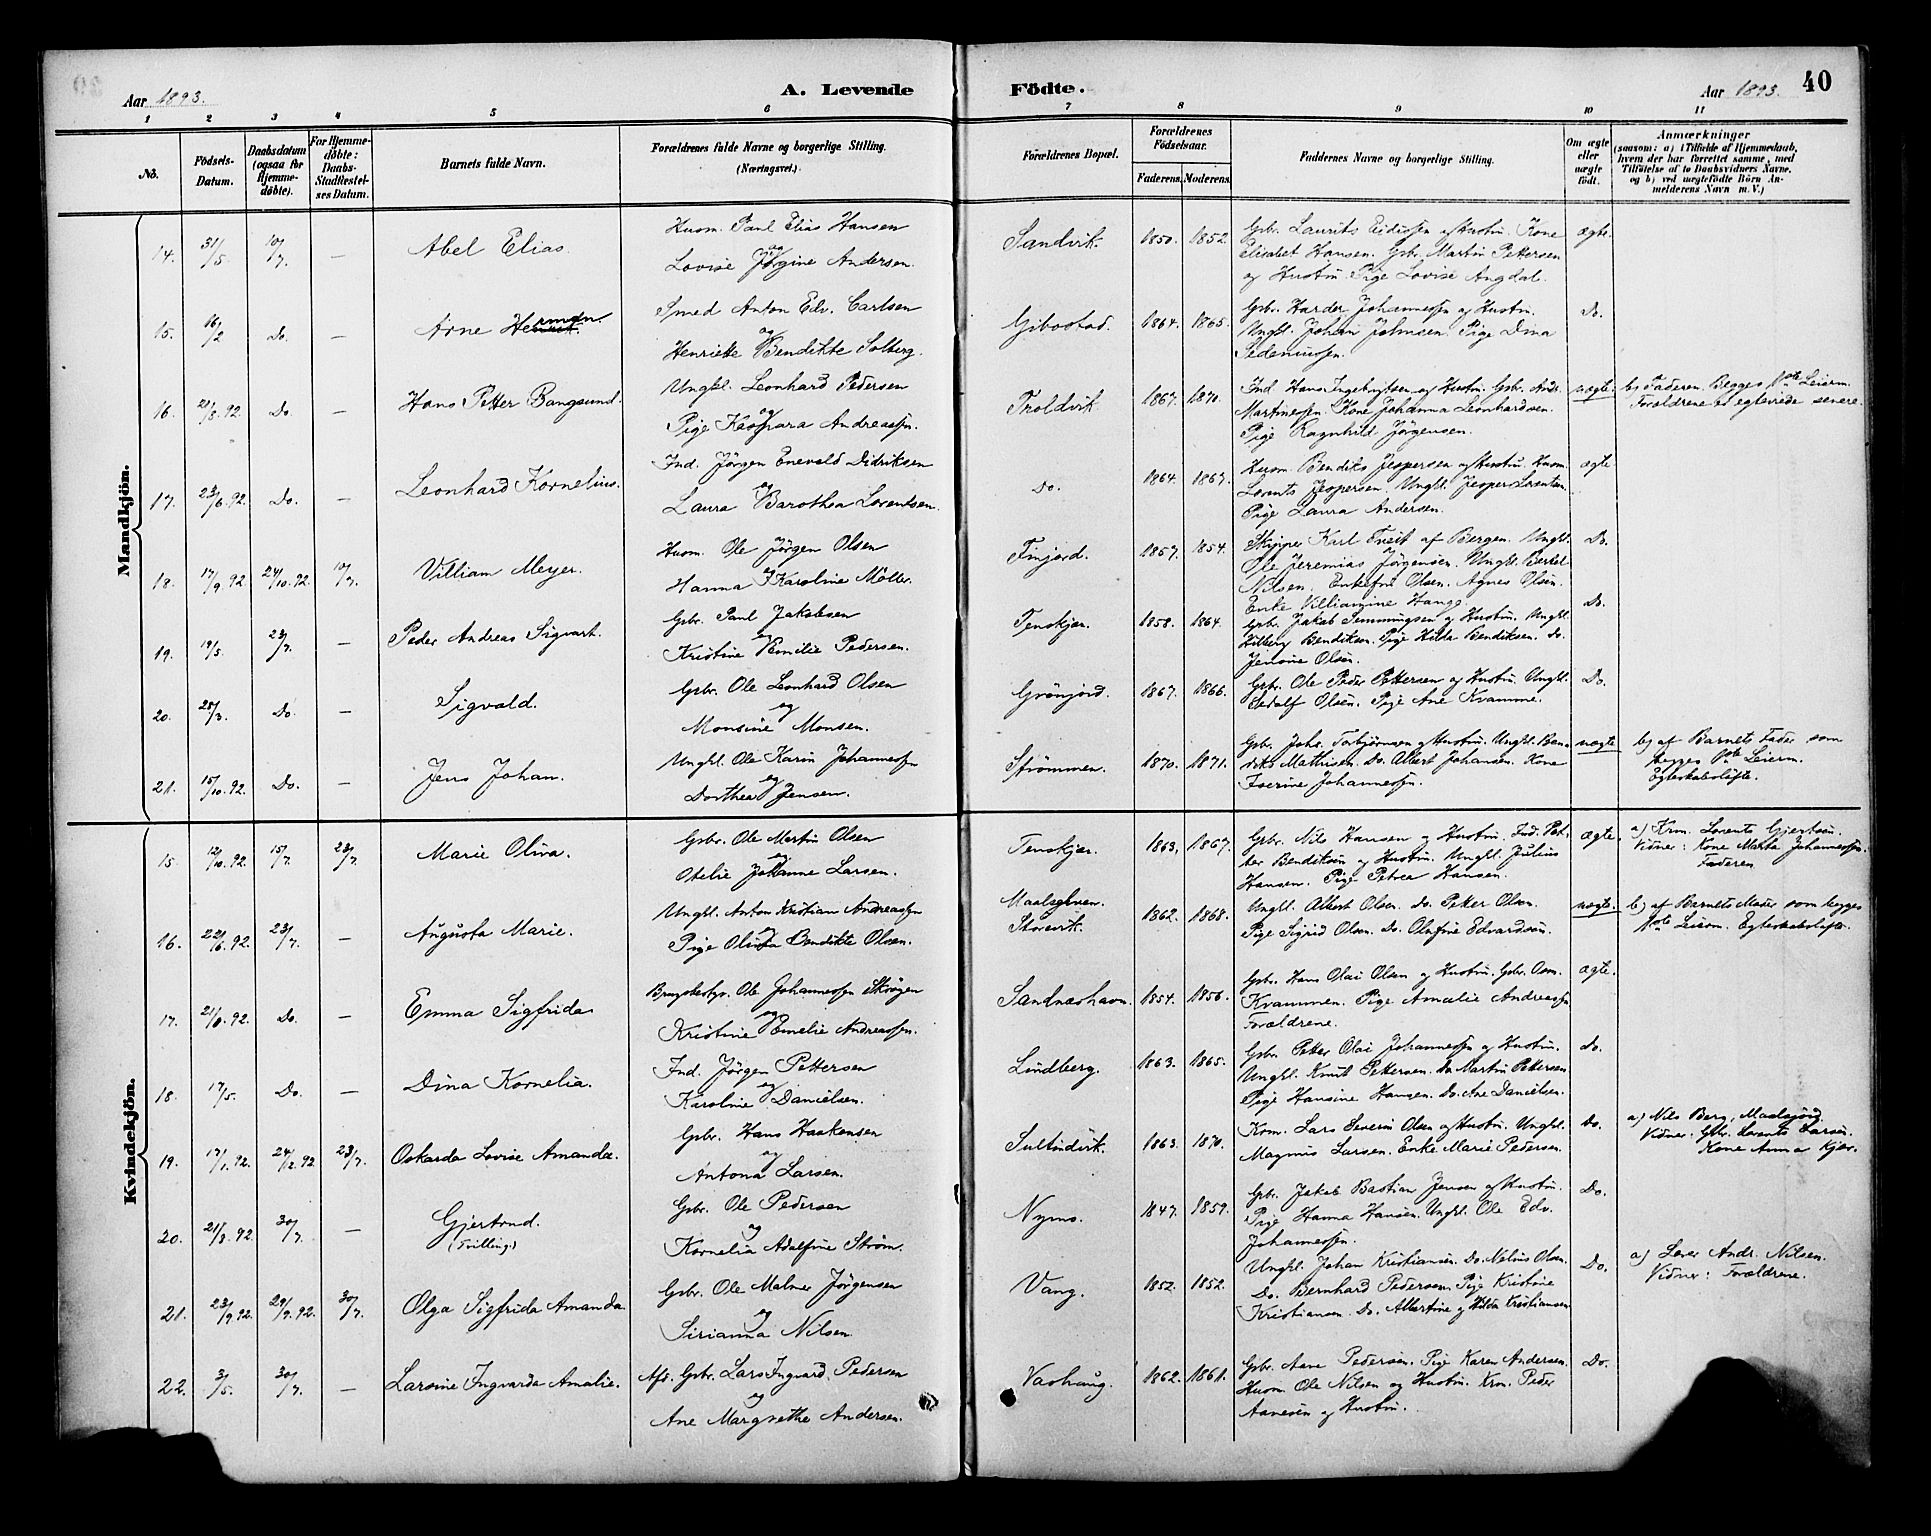 Aar 1893.
A. Levende
Födte.
Aar 1893.
40
1 2 3 4 5 6 7 8 9 10 11
No.
Födsels-
Datum.
Daabsdatum
(ogsaa for
Hjemme-
döbte).
For Hjemme-
döbte:
Daabs-
Stadfæstel-
ses Datum.
Barnets fulde Navn.
Forældrenes fulde Navne og borgerlige Stilling.
(Næringsvei.)
Forældrenes Bopæl.
Forældrenes
Födselsaar.
Faderens. Moderens.
Faddernes Navne og borgerlige Stilling.
Om ægte
eller
uægte
födt.
Anmærkninger
(saasom: a) i Tilfælde af Hjemmedaab,
hvem der har forrettet samme, med
Tilföielse af to Daabsvidners Navne.
og b) ved uægtefödte Börn An-
melderens Navn m. V.)
Mandkjön.
14. 31/5 10/7 — Abel Elias.
Husm. Paul Elias Hansen
og
Lovise Jörgine Andersen.
Sandvik. 1850. 1852.
Gbr. Laurits Eidissen og Hustru. Kone
Elisabet Hansen. Gbr. Martin Pettersen
og Hustru. Pige Lovise Angdal.
ægte.
15. 16/2 Do. — Arne Herman.
Smed Anton Edv. Carlsen
og
Henriette Bendikte Solberg.
Gibostad. 1864. 1865.
Gbr. Harder Johannessen og Hustru.
Ungkl. Johan Johnsen. Pige Dina
Do.
16. 21/8. 92. Do. — Hans Petter Bangsund.
Ungkl. Leonhard Pedersen
og
Pige Kaspara Andreassen.
Troldvik. 1867. 1870.
Ind. Hans Ingebrigtsen og Hustru. Gbr. Andr.
Martinessen. Kone Johanna Leonhardsen.
Pige Ragnhild Jörgensen.
uægte.
b) Faderen. Begges 1ste Leierm.
Forældrene er egteviede senere.
17. 23/6. 92. Do. — Leonhard Kornelius.
Ind. Jörgen Enevald Didriksen
og
Laura Barothea Lorentsen.
Do. 1864. 1867.
Husm. Bendiks Jespersen og Hustru. Husm.
Lorents Jespersen. Ungkl. Jesper Lorentsen.
Pige Laura Andersen.
ægte
18. 17/9. 92. 24/10. 92. 10/7. Villiam Meyer.
Husm. Ole Jörgen Olsen
og
Hanna Karoline Möller.
Finjord. 1857. 1854.
Skipper Karl Tveit af Bergen. Ungkl.
Ole Jeremias Jörgensen. Ungkl. Bertel
Nilsen. Enkefru Olsen. Agnes Olsen.
Enke Villiamine Hauge.
Do.
19. 19/5. 23/7. — Peder Andreas Sigvart.
Gbr. Paul Jakobsen
og
Kristine Emilie Pedersen.
Tenskjær. 1858. 1864.
Gbr. Jakob Simmingsen og Hustru. Ungkl.
Hilberg Bendiksen. Pige Hilda Bendiksen. Do.
Jensine Olsen.
Do.
20. 28/3. Do. — Sigvald.
Gbr. Ole Leonhard Olsen
og
Monsine Monsen.
Grönjord. 1867. 1866.
Gbr. Ole Peder Pettersen og Hustru. Ungkl.
Sedolf Olsen. Pige Ane Kvamme.
Do.
21. 15/10. 92. Do. — Jens Johan.
Ungkl. Ole Karin Johannessen
og
Dorthea Jensen.
Strömmen. 1870. 1871.
Gbr. Johs. Torbjörnsen og Hustru. Ungkl. Ben-
diks Mathisen. Do. Albert Johansen. Kone
Iverine Johannessen.
uægte
b) af Barnets Fader som
begges 1ste Leierm.
Egteskabslöfte.
Kvindekjön.
15. 12/10. 92. 15/7. 23/7. Marie Oliva.
Gbr. Ole Martin Olsen
og
Otelie Johanne Larsen.
Tenskjær. 1863. 1867.
Gbr. Nils Hansen og Hustru. Ind. Pet-
ter Bendiksen og Hustru. Ungkl. Julius
Hansen. Pige Petrea Hansen.
ægte.
a) Krm. Lorents Gjertsen.
Vidner: Kone Marta Johannessen.
Faderen
16. 22/6. 92. 23/7. — Augusta Marie.
Ungkl. Anton Kristian Andreassen
og
Pige Olivia Bendikte Olsen.
Maalsgaven.
Storvik. 1862. 1868.
Ungkl. Albert Olsen. Do. Petter Olsen.
Pige Sigrid Olsen. Do. Olufine Edvardsen.
uægte.
b) af Barnets Moder som begges
1ste Leierm. Egteskabslöfte.
17. 21/8. 92. Do. — Emma Sigfrida.
Brugsbestyr. Ole Johannessen Skrögen
og
Kristine Emelie Andreassen.
Sandneshavn. 1854. 1856.
Gbr. Hans Olai Olsen og Hustru. Gbr. Osm.
Kvammen. Pige Amalie Andreassen
Forældrene.
ægte.
18. 17/5. Do. — Dina Kornelia.
Ind. Jörgen Pettersen
og
Karoline Danielsen.
Lindberg. 1863. 1865.
Gbr. Petter Olai Johannessen og Hustru.
Ungkl. Knut Pettersen. Do. Martin Pettersen
Pige Hansine Hansen. Do. Ane Danielsen.
Do.
19. 17/1. 92. 24/12. 92 23/7. Oskarda Lovise Amanda.
Gbr. Hans Haakensen
og
Antona Larsen.
Sultindvik. 1863. 1870.
Krm. Lars Severin Olsen og Hustru. Ungkl.
Magnus Larsen. Enke Marie Pedersen.
Do.
a) Nils Berg, Maalsjord.
Vidner: Gbr. Lorents Larsen.
Kone Anna Kjær.
20. 21/8. 92 30/7. — Gjertrud.
(Tvilling)
Gbr. Ole Pedersen
og
Kornelia Adolfine Ström.
Nymo. 1847. 1859.
Gbr. Jakob Bastian Jensen og Hustru.
Pige Hanna Hansen. Ungkl. Ole Edv.
Johannessen.
Do.
21. 23/9. 92. 29/9. 92. 30/7. Olga Sigfrida Amanda.
Gbr. Ole Malner Jörgensen
og
Sirianna Nilsen.
Vang. 1852. 1852.
Ungkl. Johan Kristiansen. Do. Nelius Olsen
Do. Bernhard Pedersen. Pige Kristine
Kristiansen. Do. Albertine og Hilda Kristiansen
Do.
a) Lærer Andr. Nilsen.
Vidner: Forældrene.
22. 3/5. 30/7. — Larsine Ingvarda Amalie.
Afd. Gbr. Lars Ingvard Pedersen
og
Ane Margrethe Andersen.
Vashaug. 1862. 1861.
Gbr. Aane Pedersen. Pige Karen Andersen.
Husm. Ole Nilsen og Hustru. Krm. Peder
Aanesen og Hustru.
Do.